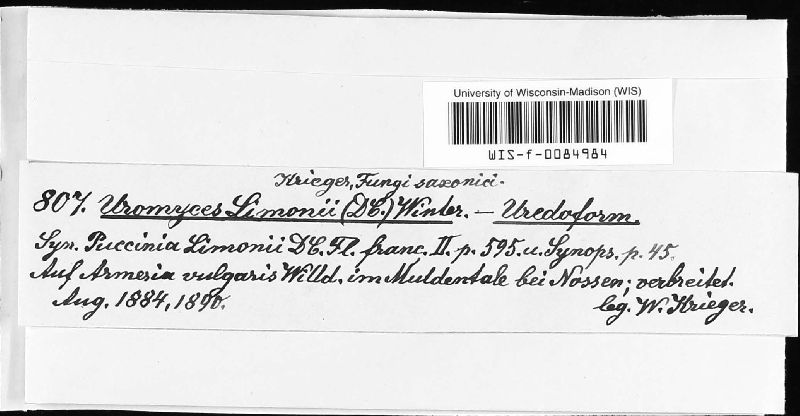 University of Wisconsin-Madison (WIS)
WIS-f-0084984
Krieger, Fungi saxonici.
807. Uromyces Limonii (DC.) Winter. — Uredoform.
Syn. Puccinia Limonii DC. Fl. franc. II. p. 595. u. Synops. p. 45.
Auf Armeria vulgaris Willd. im Muldentale bei Nossen; verbreitet.
Aug. 1884, 1890. leg. W. Krieger.